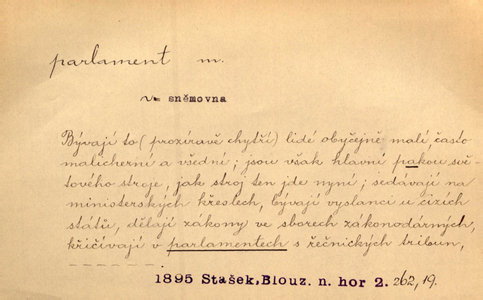 parlament m.
sněmovna
Bývají to (prozíravě chytří) lidé obyčejně malí, často
malicherní a všední; jsou však hlavní pakou svě-
tového stroje, jak stroj ten jde nyní; sedávají na
ministerských křeslech, bývají vyslanci u cizích
států, dělají zákony ve sborech zákonodárných,
křičívají v parlamentech s řečnických tribun,
1895 Stašek, Blouz. n. hor 2. 262, 19.